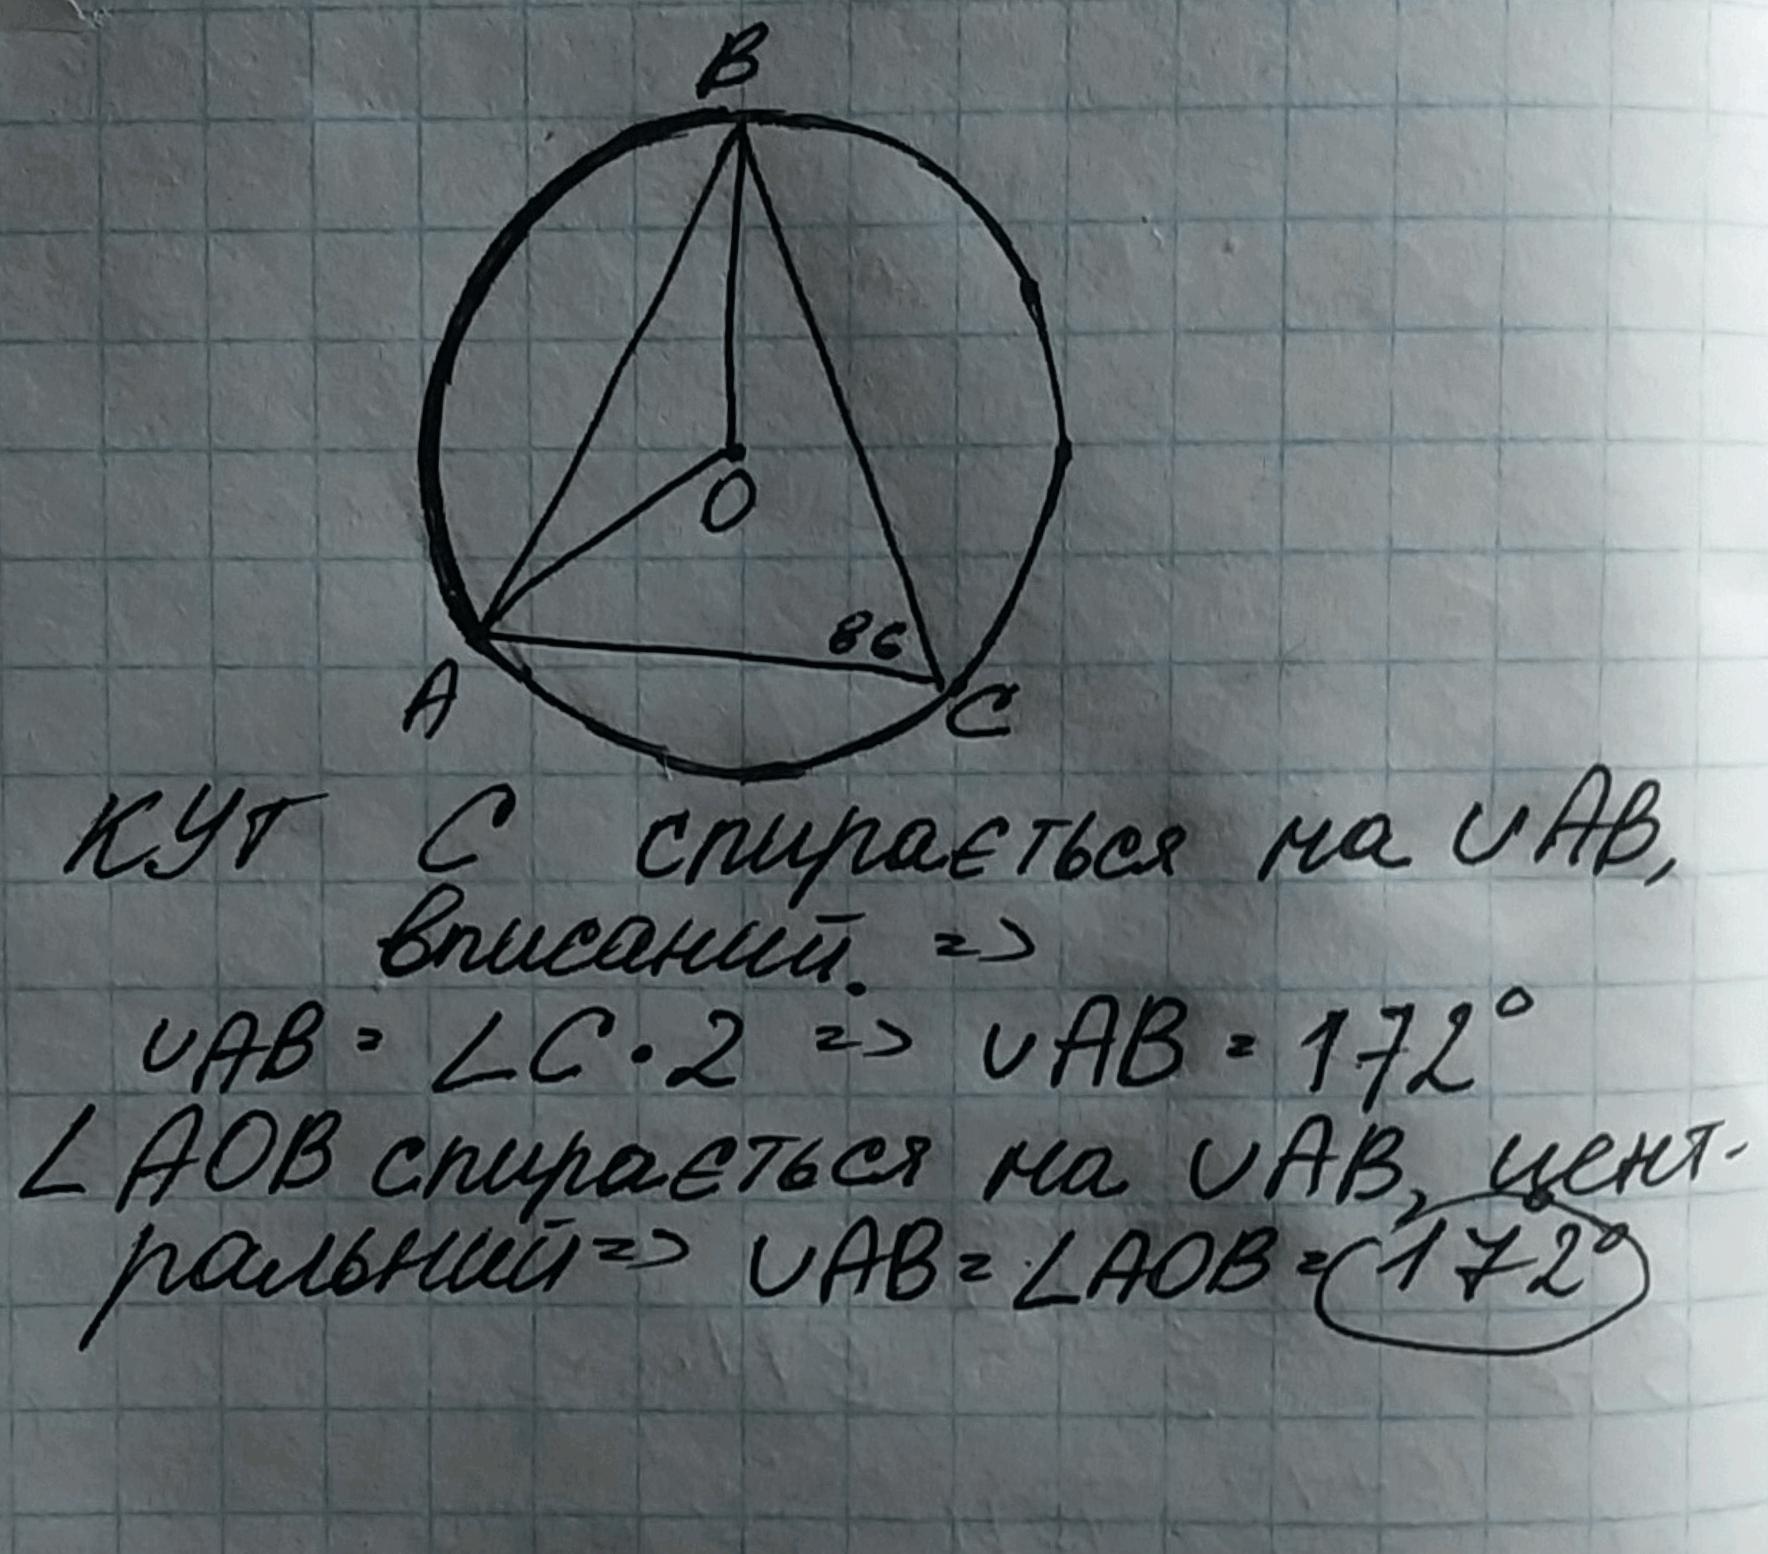 B
O
86
A
C
КУТ С спирається на ∪AB,
вписаний. =>
∪AB = ∠C · 2 => ∪AB = 172°
∠AOB спирається на ∪AB, цент-
ральний => ∪AB = ∠AOB = 172°